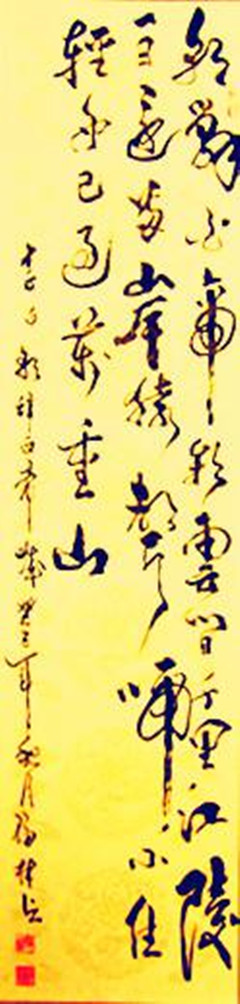 朝辭白帝彩雲間千里江陵
一日還兩岸猿聲啼不住
輕舟已過萬重山
李白朝辭白帝城癸巳年秋月